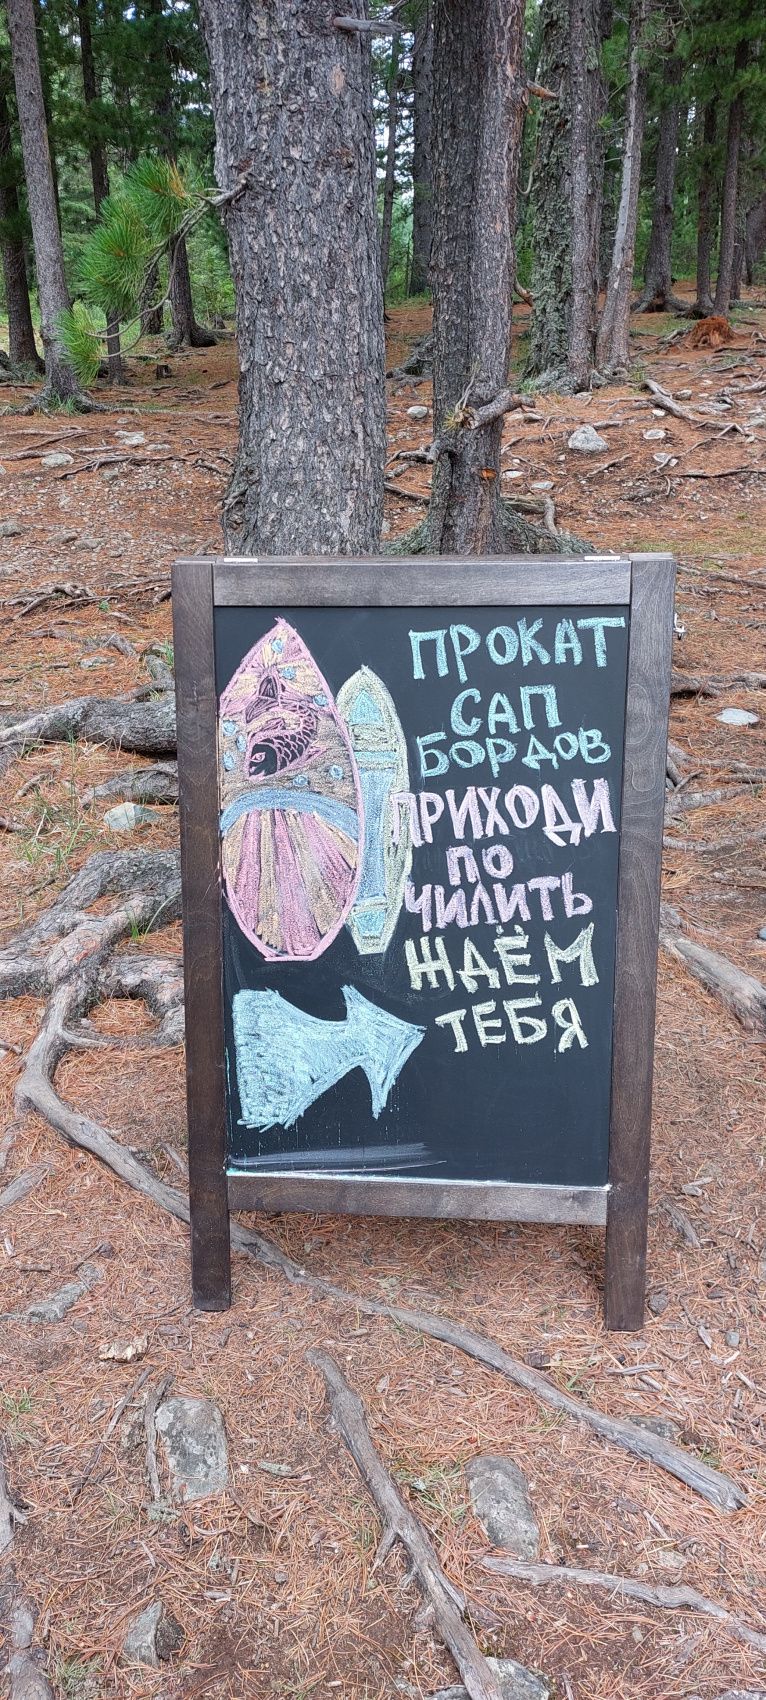 ПРОКАТ
САП
БОРДОВ
ПРИХОДИ
ПО
ЧИЛИТЬ
ЖДЁМ
ТЕБЯ